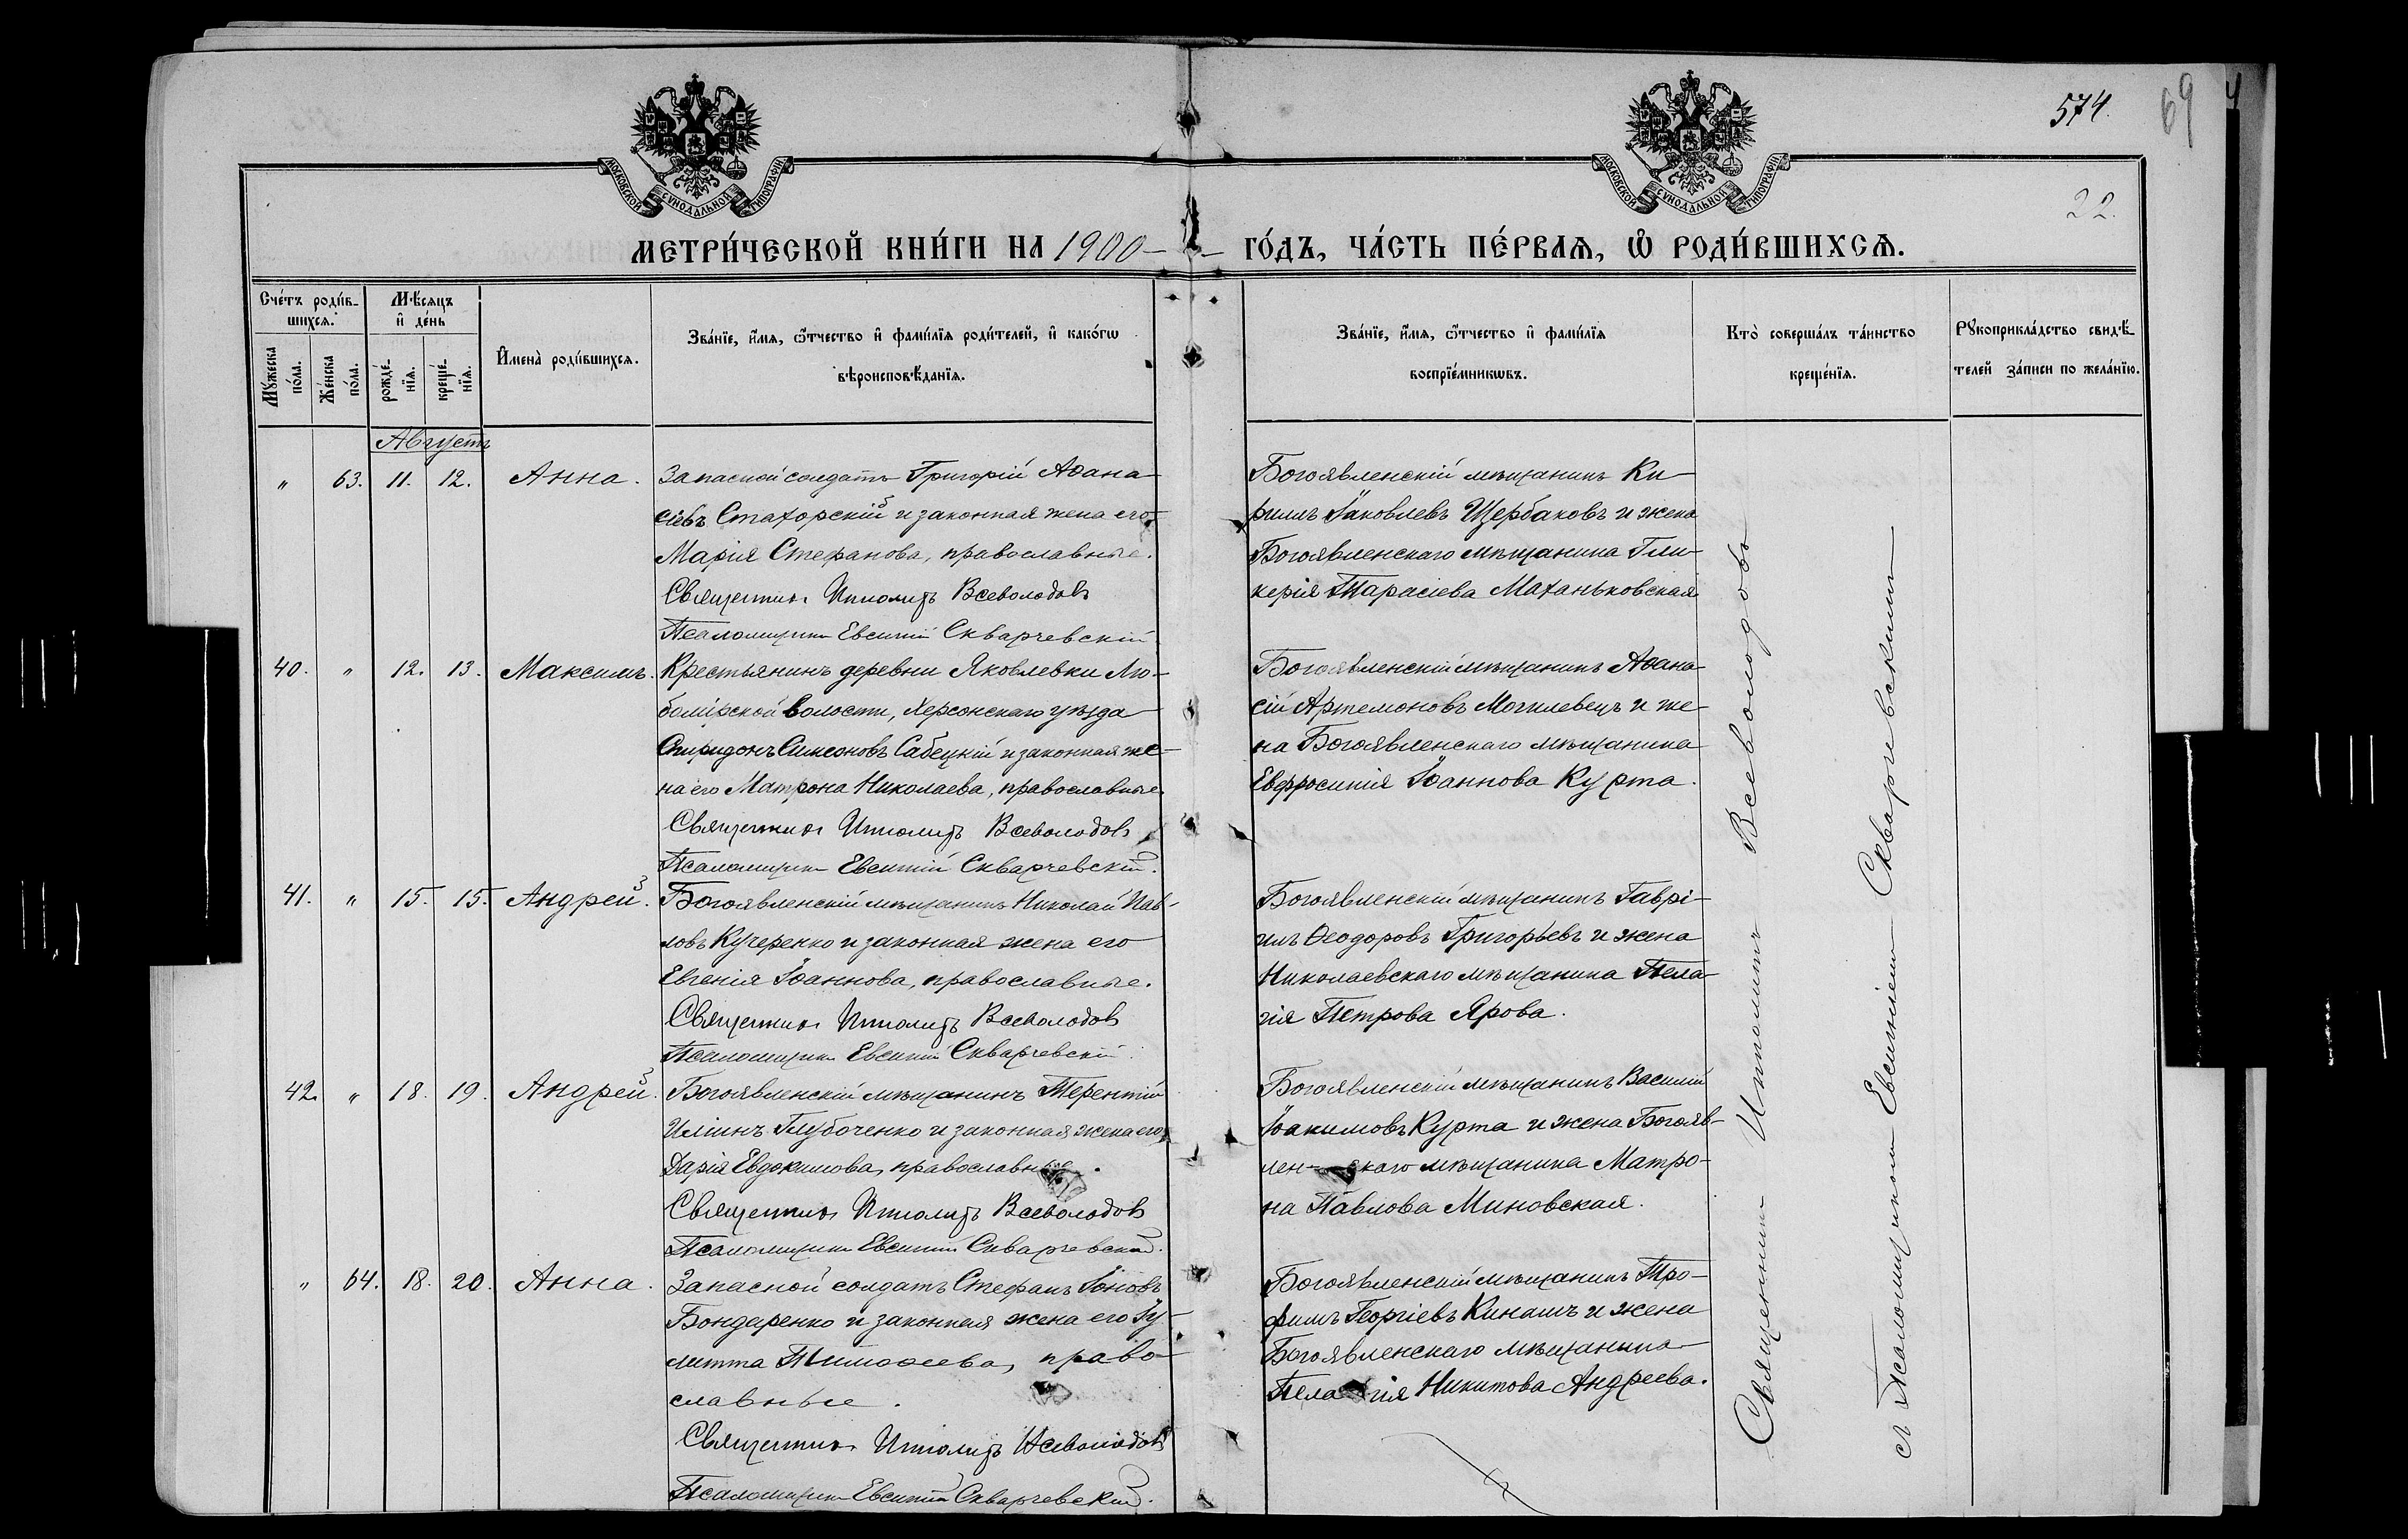 574.
69
22.
МОСКОВСКОЙ СѴНОДАЛЬНОЙ ТИПОГРАФІИ
МОСКОВСКОЙ СѴНОДАЛЬНОЙ ТИПОГРАФІИ
МЕТРИ́ЧЕСКОЙ КНИ́ГИ НА 1900 ГО́ДЪ, ЧА́СТЬ ПЕ́РВАѦ, Ѽ РОДИ́ВШИХСѦ.
Сче́тъ роди́в-
шихсѧ.
Мѣ́сяцъ
и҆ де́нь
Мꙋ́жеска по́ла.
Же́нска по́ла.
рожде́-
нїѧ.
креще́-
нїѧ.
И҆мена̀ роди́вшихсѧ.
Зва́нїе, и҆́мѧ, ѻ҆́тчество и҆ фами́лїѧ роди́телей, и҆ како́гѡ
вѣроисповѣ́данїѧ.
Зва́нїе, и҆́мѧ, ѻ҆́тчество и҆ фами́лїѧ
воспрїе́мникѡвъ.
Кто̀ соверша́лъ та́инство
креще́нїѧ.
Рꙋкоприкла́дство свидѣ́-
телей за́писи по жела́нїю.
Августъ
" 63. 11. 12. Анна.
Запасной солдатъ Григорій Аѳана-
сіевъ Стахорскій и законная жена его
Марія Стефанова, православные.
Священникъ Ипполитъ Всеволодовъ
Псаломщикъ Евсигній Скварчевскій
Богоявленскій мѣщанинъ Ки-
риллъ Іаковлевъ Щербаковъ и жена
Богоявленскаго мѣщанина Гли-
керія Тарасіева Маханьковская
40. " 12. 13. Максимъ.
Крестьянинъ деревни Яковлевки Лю-
бомірской волости, Херсонскаго уѣзда
Спиридонъ Симеоновъ Сабецкій и законная же-
на его Матрона Николаева, православные.
Священникъ Ипполитъ Всеволодовъ
Псаломщикъ Евсигній Скварчевскій.
Богоявленскій мѣщанинъ Аѳана-
сій Артемоновъ Могилевецъ и же-
на Богоявленскаго мѣщанина
Евфросинія Іоаннова Курта.
41. " 15. 15. Андрей.
Богоявленскій мѣщанинъ Николай Пав-
ловъ Кучеренко и законная жена его
Евгенія Іоаннова, православные.
Священникъ Ипполитъ Всеволодовъ
Псаломщикъ Евсигній Скварчевскій
Богоявленскій мѣщанинъ Гаврі-
илъ Ѳеодоровъ Григорьевъ и жена
Николаевскаго мѣщанина Пела-
гія Петрова Ярова.
42. " 18. 19. Андрей.
Богоявленскій мѣщанинъ Терентій
Иліинъ Глубоченко и законная жена его
Дарія Евдокимова, православные.
Священникъ Ипполитъ Всеволодовъ
Псаломщикъ Евсигній Скварчевскій.
Богоявленскій мѣщанинъ Василій
Іоакимовъ Курта и жена Богояв-
лен-скаго мѣщанина Матро-
на Павлова Миновская.
" 64. 18. 20. Анна.
Запасной солдатъ Стефанъ Іоновъ
Бондаренко и законная жена его Іу-
литта Тимоѳеева, право-
славные.
Священникъ Ипполитъ Всеволодовъ
Псаломщикъ Евсигній Скварчевскій.
Богоявленскій мѣщанинъ Тро-
фимъ Георгіевъ Кинашъ и жена
Богоявленскаго мѣщанина
Пелагія Никитова Андреева.
Священникъ Ипполитъ Всеволодовъ
съ Псаломщикомъ Евсигніемъ Скварчевскимъ